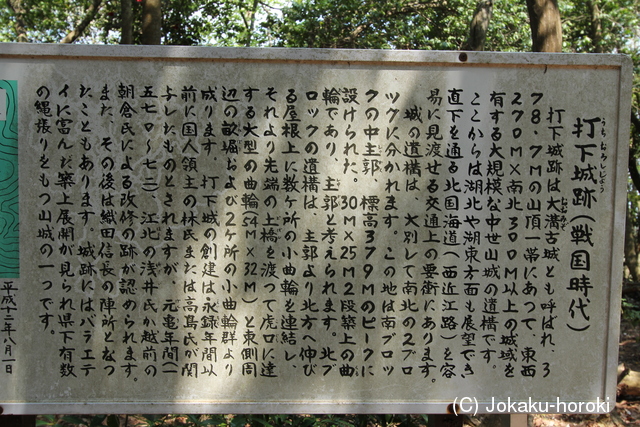 打下城跡(戦国時代)
うちおろしじょう
打下城跡は大溝古城とも呼ばれ、3
おおみぞ
78.7Mの山頂一帯にあって、東西
270M×南北300M以上の城域を
有する大規模な中世山城の遺構です。
ここからは湖北や湖東方面も展望でき
直下を通る北国海道(西近江路)を容
易に見渡せる交通上の要衝にあります。
城の遺構は、大別して南北の2ブロ
ックに分かれます。この地は南ブロッ
クの中主郭、標高379Mのピークに
設けられた。30M×25M2段築上の曲
輪であり、主郭と考えられます。北ブ
ロックの遺構は、主郭より北方へ伸び
る屋根上に数ヶ所の小曲輪を連結し、
それより先端の土橋を渡って虎口に達
する大型の曲輪(54M×32M)と東側周
辺の畝堀および2ケ所の小曲輪群より
成ります。打下城の創建は永録年間以
前に国人領主の林氏または高島氏が関
与したものとされますが、元亀年間(一
五七〇〜七二)、江北の浅井氏か越前の
朝倉氏による改修の跡が認められます。
また、その後は織田信長の陣所となっ
たこともあります。城跡にはバラエテ
イに富んだ築上展開が見られ県下有数
の縄張りをもつ山城の一つです。
平成十二年八月一日
(C) Jokaku-horoki